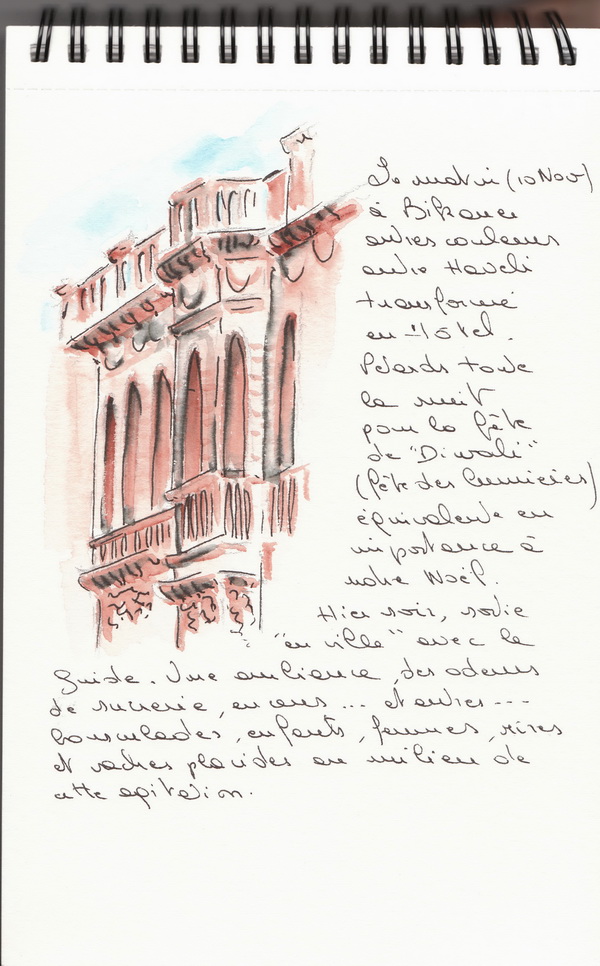 Le matin (10 Nov)
à Bikaner
autres couleurs
autre Haveli
transformé
en Hôtel.
Pétards toute
la nuit
pour la fête
de "Diwali"
(fête des lumières)
équivalente en
importance à
notre Noël.
Hier soir, sortie
"en ville" avec le
guide. Une ambiance, des odeurs
de sucrerie, encens ... et autres ---
bousculades, enfants, femmes, rires
et vaches placides au milieu de
cette agitation.